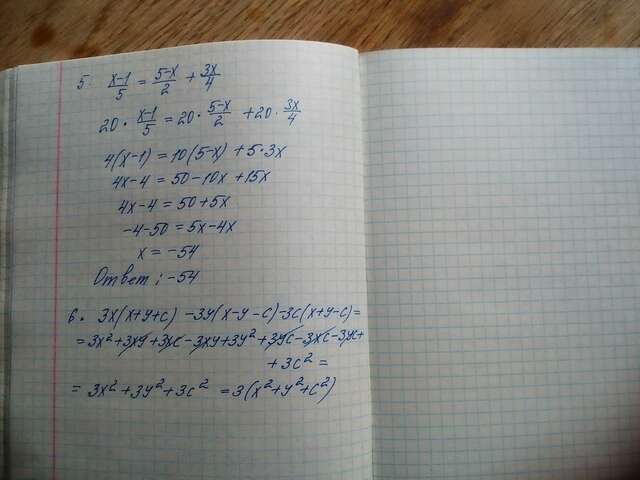 5. (x-1)/5 = (5-x)/2 + 3x/4
20 · (x-1)/5 = 20 · (5-x)/2 + 20 · 3x/4
4(x-1) = 10(5-x) + 5·3x
4x-4 = 50-10x+15x
4x-4 = 50+5x
-4-50 = 5x-4x
x = -54
Ответ: -54
6. 3x(x+y+c) -3y(x-y-c)-3c(x+y-c)=
=3x²+3xy+3xc-3xy+3y²+3yc-3xc-3yc+
+3c² =
= 3x²+3y²+3c² =3(x²+y²+c²)